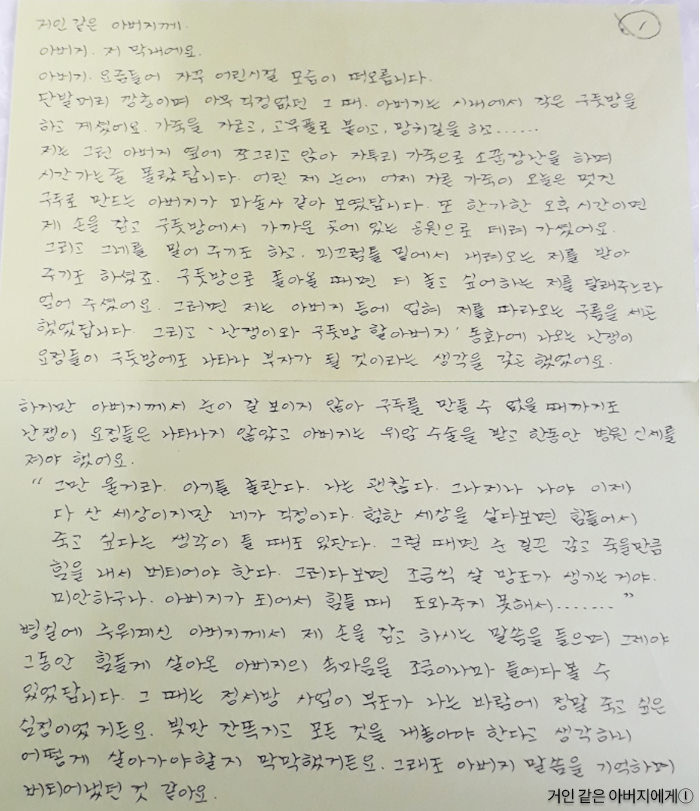 ①
거인 같은 아버지께.
아버지. 저 막내에요.
아버지. 요즘들어 자꾸 어린시절 모습이 떠오릅니다.
단발머리 깡총이며 아무 걱정없던 그 때. 아버지는 시내에서 작은 구둣방을
하고 계셨어요. 가죽을 자르고, 고무풀로 붙이고, 망치질을 하고......
저는 그런 아버지 옆에 쪼그리고 앉아 자투리 가죽으로 소꿉장난을 하며
시간가는줄 몰랐답니다. 어린 제 눈에 어제 자른 가죽이 오늘은 멋진
구두로 만드는 아버지가 마술사 같아 보였답니다. 또 한가한 오후 시간이면
제 손을 잡고 구둣방에서 가까운 곳에 있는 공원으로 데려 가셨어요.
그리고 그네를 밀어 주기도 하고. 미끄럼틀 밑에서 내려오는 저를 받아
주기도 하셨죠. 구둣방으로 돌아올 때면 더 놀고 싶어하는 저를 달래주느라
업어 주셨어요. 그러면 저는 아버지 등에 업혀 저를 따라오는 구름을 세곤
했었답니다. 그리고 '난쟁이와 구둣방 할아버지' 동화에 나오는 난쟁이
요정들이 구둣방에도 나타나 부자가 될 것이라는 생각을 갖곤 했었어요.
하지만 아버지께서 눈이 잘 보이지 않아 구두를 만들 수 없을 때까지도
난쟁이 요정들은 나타나지 않았고 아버지는 위암 수술을 받고 한동안 병원 신세를
져야 했어요.
" 그만 울거라. 아기들 놀란다. 나는 괜찮다. 그나저나 나야 이제
다 산 세상이지만 네가 걱정이다. 험한 세상을 살다보면 힘들어서
죽고 싶다는 생각이 들 때도 있단다. 그럴 때면 눈 질끈 감고 죽을만큼
힘을 내서 버티어야 한다. 그러다보면 조금씩 살 방도가 생기는 거야.
미안하구나. 아버지가 되어서 힘들 때 도와주지 못해서....... "
병실에 누워계신 아버지께서 제 손을 잡고 하시는 말씀을 들으며 그제야
그동안 힘들게 살아온 아버지의 속마음을 조금이나마 들여다 볼 수
있었답니다. 그 때는 정서방 사업이 부도가 나는 바람에 정말 죽고 싶은
심정이었거든요. 빚만 잔뜩지고 모든 것을 내놓아야 한다고 생각하니
어떻게 살아가야할지 막막했거든요. 그래도 아버지 말씀을 기억하며
버티어냈던 것 같아요.
거인 같은 아버지에게①